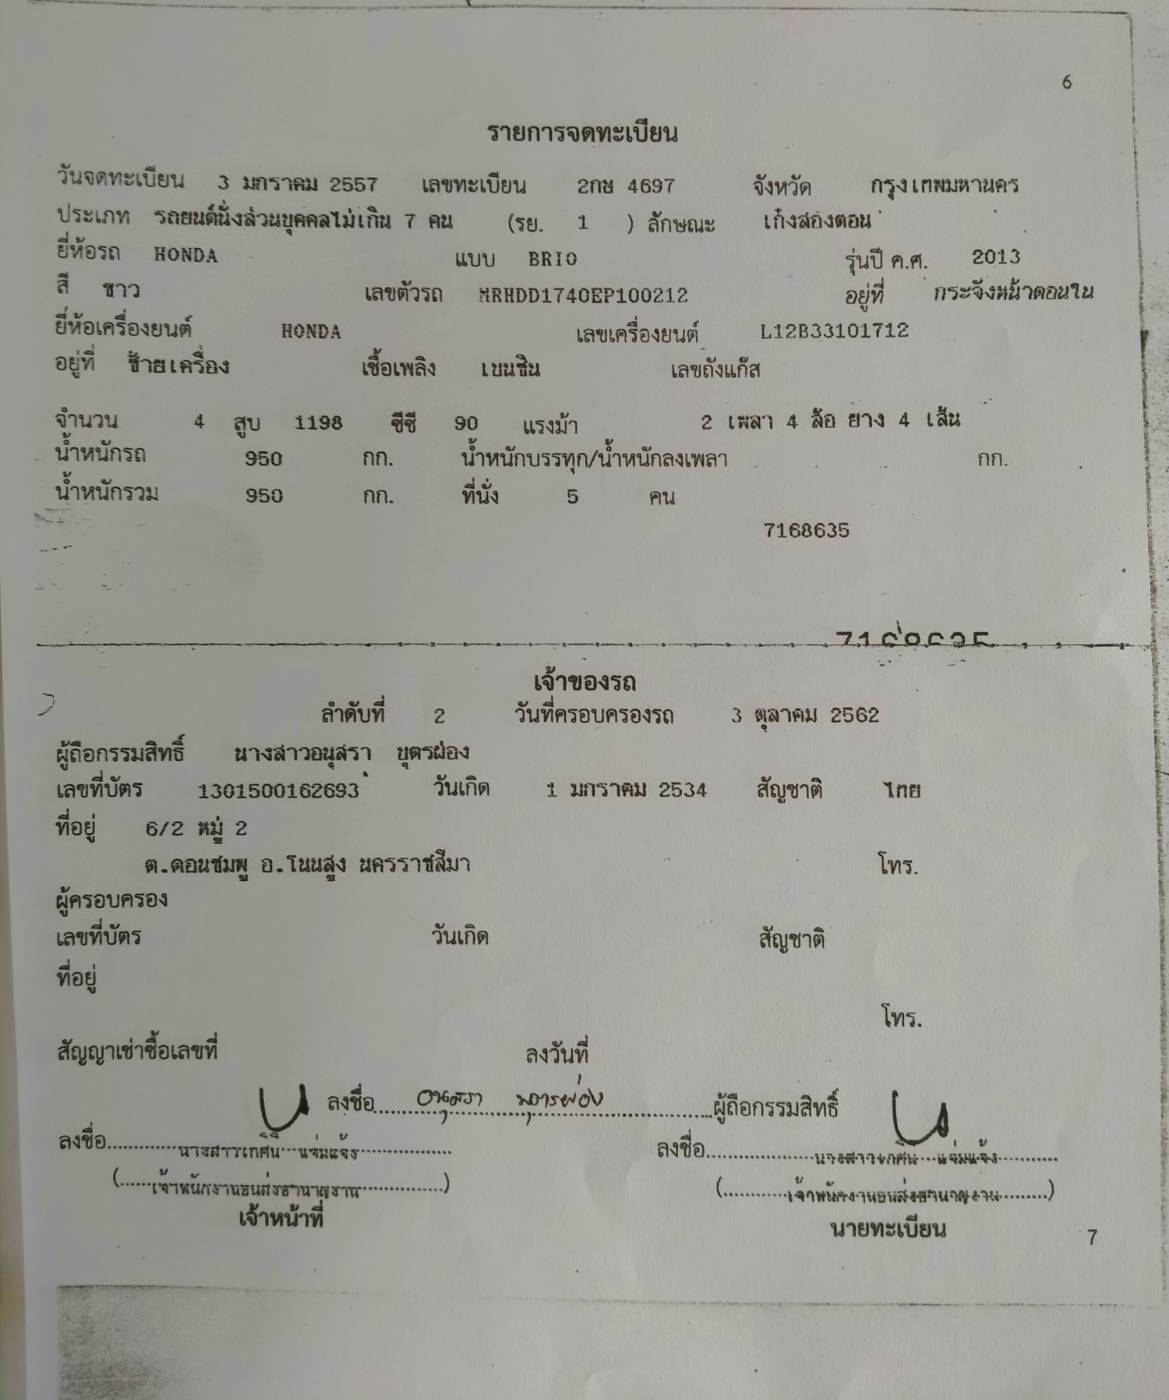 6
รายการจดทะเบียน
วันจดทะเบียน 3 มกราคม 2557 เลขทะเบียน 2กษ 4697 จังหวัด กรุงเทพมหานคร
ประเภท รถยนต์นั่งส่วนบุคคลไม่เกิน 7 คน (รย. 1 ) ลักษณะ เก๋งสองตอน
ยี่ห้อรถ HONDA แบบ BRIO รุ่นปี ค.ศ. 2013
สี ขาว เลขตัวรถ MRHDD1740EP100212 อยู่ที่ กระจังหน้าตอนใน
ยี่ห้อเครื่องยนต์ HONDA เลขเครื่องยนต์ L12B33101712
อยู่ที่ ซ้ายเครื่อง เชื้อเพลิง เบนซิน เลขถังแก๊ส
จำนวน 4 สูบ 1198 ซีซี 90 แรงม้า 2 เพลา 4 ล้อ ยาง 4 เส้น
น้ำหนักรถ 950 กก. น้ำหนักบรรทุก/น้ำหนักลงเพลา กก.
น้ำหนักรวม 950 กก. ที่นั่ง 5 คน
7168635
7168635
เจ้าของรถ
ลำดับที่ 2 วันที่ครอบครองรถ 3 ตุลาคม 2562
ผู้ถือกรรมสิทธิ์ นางสาวอนุสรา บุตรผ่อง
เลขที่บัตร 1301500162693 วันเกิด 1 มกราคม 2534 สัญชาติ ไทย
ที่อยู่ 6/2 หมู่ 2
ต.ดอนชมพู อ.โนนสูง นครราชสีมา โทร.
ผู้ครอบครอง
เลขที่บัตร วันเกิด สัญชาติ
ที่อยู่
โทร.
สัญญาเช่าซื้อเลขที่ ลงวันที่
ลงชื่อ อนุสรา บุตรผ่อง ผู้ถือกรรมสิทธิ์
ลงชื่อ นางสาวเกศินี แจ่มแจ้ง ลงชื่อ นางสาวเกศินี แจ่มแจ้ง
(เจ้าพนักงานขนส่งชำนาญงาน) (เจ้าพนักงานขนส่งชำนาญงาน)
เจ้าหน้าที่ นายทะเบียน
7